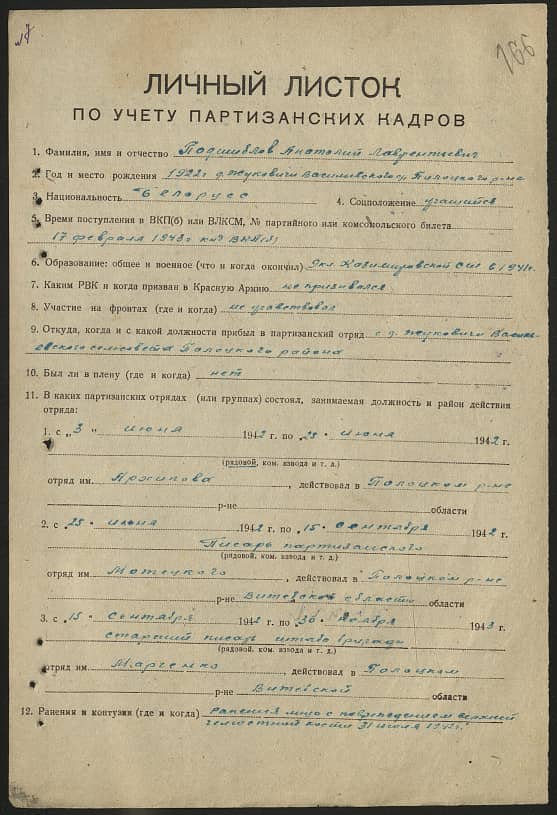 166
ЛИЧНЫЙ ЛИСТОК
ПО УЧЕТУ ПАРТИЗАНСКИХ КАДРОВ
1. Фамилия, имя и отчество Подшивлов Анатолий Лаврентьевич
2. Год и место рождения 1922г д. Жуковичи Полоцкого р-на
3. Национальность Белорусс 4. Соцположение учащийся
5. Время поступления в ВКП(б) или ВЛКСМ, № партийного или комсомольского билета
17 февраля 1943г
6. Образование: общее и военное (что и когда окончил) 9кл. Казимировской СШ в 1941г.
7. Каким РВК и когда призван в Красную Армию не призывался
8. Участие на фронтах (где и когда) не участвовал
9. Откуда, когда и с какой должности прибыл в партизанский отряд с д. Жуковичи Василь-
евского сельсовета Полоцкого района
10. Был ли в плену (где и когда) нет
11. В каких партизанских отрядах (или группах) состоял, занимаемая должность и район действия
отряда:
1. с „3" июня 1942 г. по 25 июня 1942 г.
(рядовой, ком. взвода и т. д.)
отряд им. Архипова, действовал в Полоцком р-не
р-не области
2. с 25 июня 1942 г. по 15 Сентября 1942 г.
Писарь партизанского
(рядовой, ком. взвода и т. д.)
отряд им. Мотецкого, действовал в Полоцком р-не
р-не Витебской области области
3. с 15 Сентября 1942 г. по 30 Ноября 1943 г.
старший писарь штаба бригады
(рядовой, ком. взвода и т. д.)
отряд им. Марченко, действовал в Полоцком
р-не Витебской области
12. Ранения и контузии (где и когда) Ранения лицо с повреждением верхней
челюстной кости 31 июля